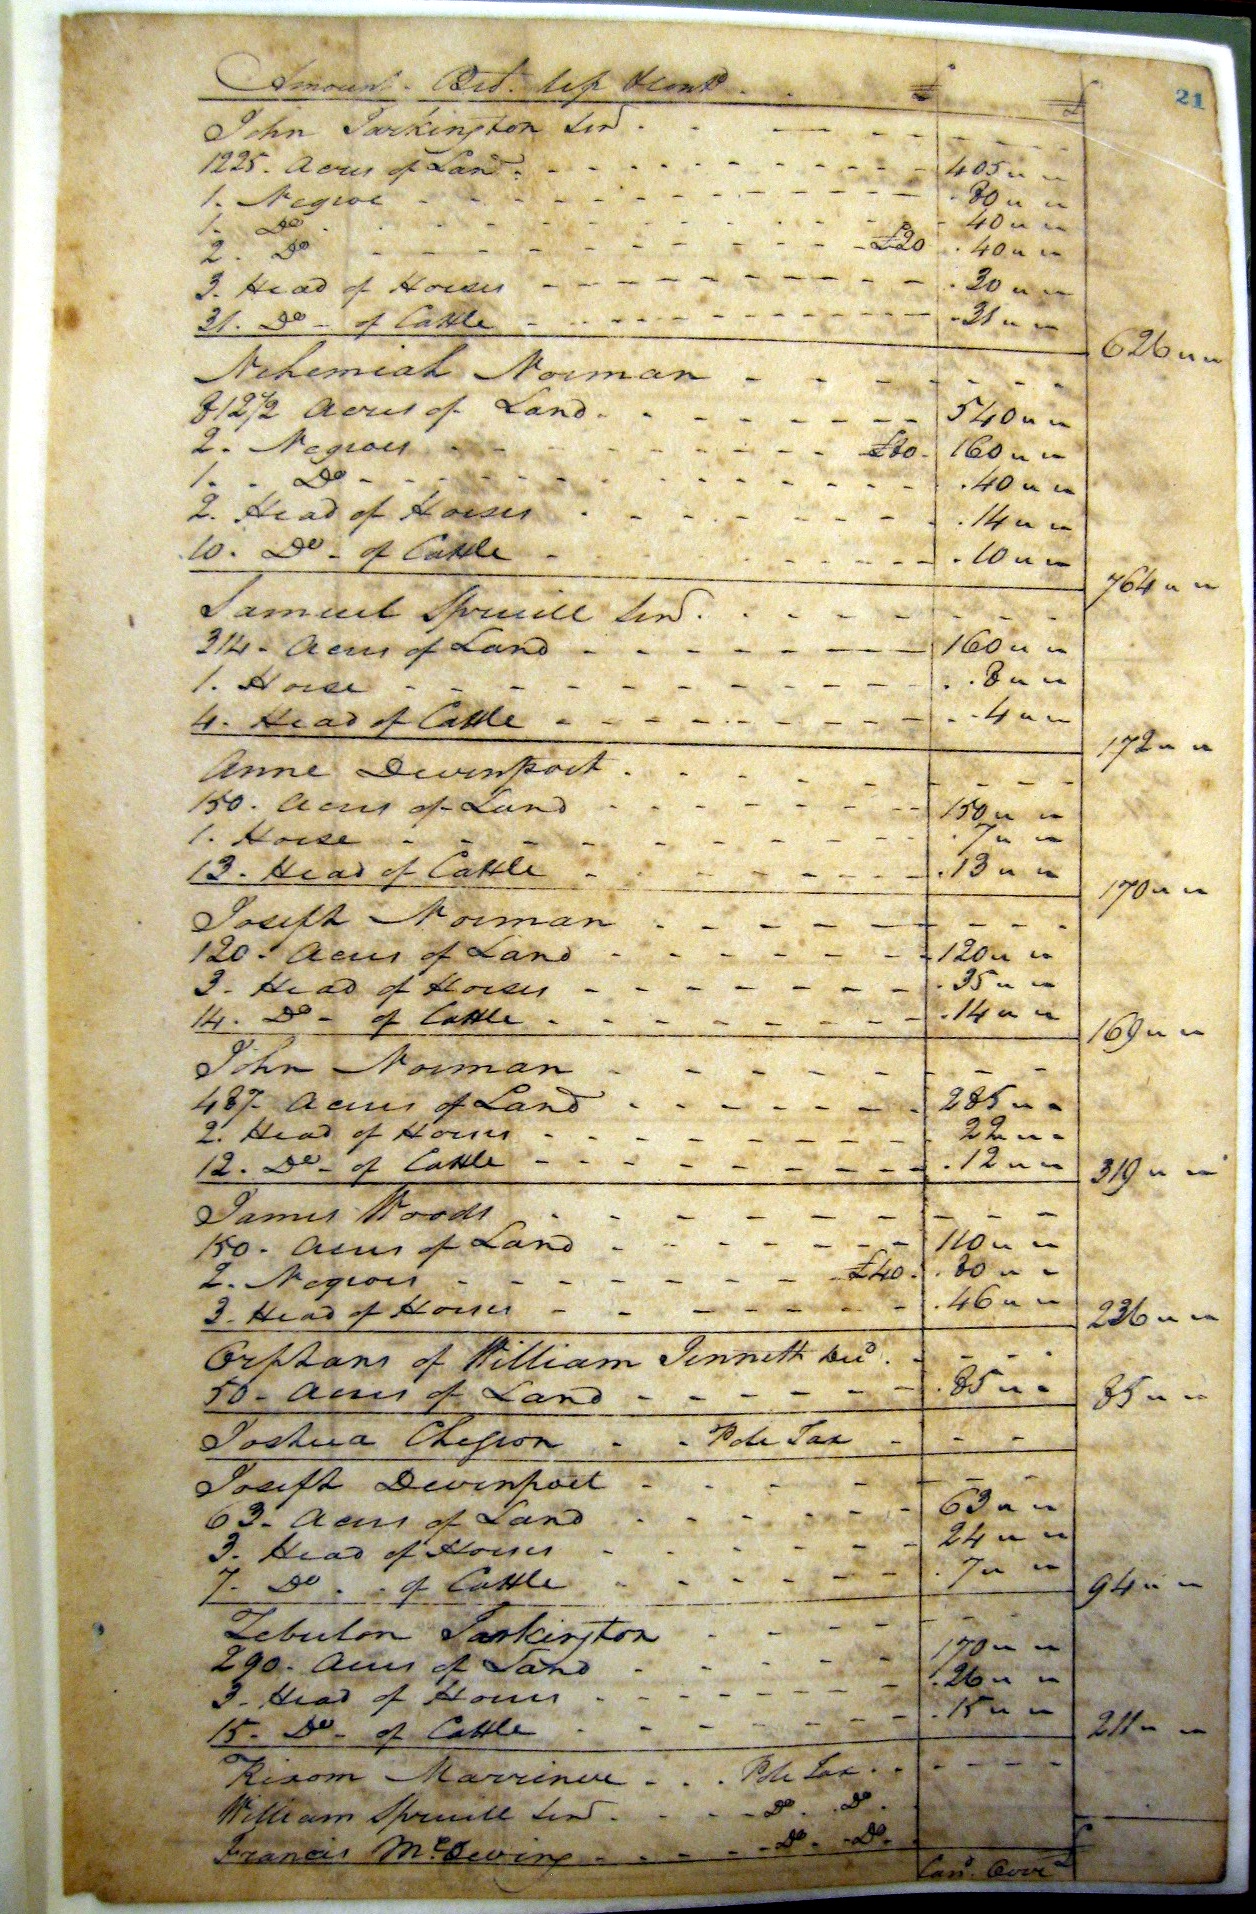 21
Amount. Brt. up £
John Tarkington Senr.
1225. Acres of Land. 405 " "
1. Negroe 80 " "
1. Do 40 " "
2. Do £20 40 " "
3. Head of Horses 30 " "
31. Do of Cattle 31 " "
626 " "
Nehemiah Norman
812 1/2 Acres of Land 540 " "
2. Negroes £80. 160 " "
1. Do 40 " "
2. Head of Horses 14 " "
10. Do of Cattle 10 " "
764 " "
Samuel Spruill Senr.
314. Acres of Land 160 " "
1. Horse 8 " "
4. Head of Cattle 4 " "
172 " "
Anne Devenport
150. Acres of Land 150 " "
1. Horse 7 " "
13. Head of Cattle 13 " "
170 " "
Joseph Norman
120. Acres of Land 120 " "
3. Head of Horses 35 " "
14. Do of Cattle 14 " "
169 " "
John Norman
487. Acres of Land 285 " "
2. Head of Horses 22 " "
12. Do of Cattle 12 " "
319 " "
James Woods
150. Acres of Land 110 " "
2. Negroes £40. 80 " "
3. Head of Horses 46 " "
236 " "
Orphans of William Jennett Decd.
50. Acres of Land 85 " " 85 " "
Joshua Chesson Pole Tax
Joseph Devenport
63. Acres of Land 63 " "
3. Head of Horses 24 " "
7. Do of Cattle 7 " "
94 " "
Zebulon Tarkington
290. Acres of Land 170 " "
3. Head of Horses 26 " "
15. Do of Cattle 15 " "
211 " "
Kisom Marriner Pole Tax
William Spruill Senr. Do. Do.
Francis Do. Do.
Card. Over £